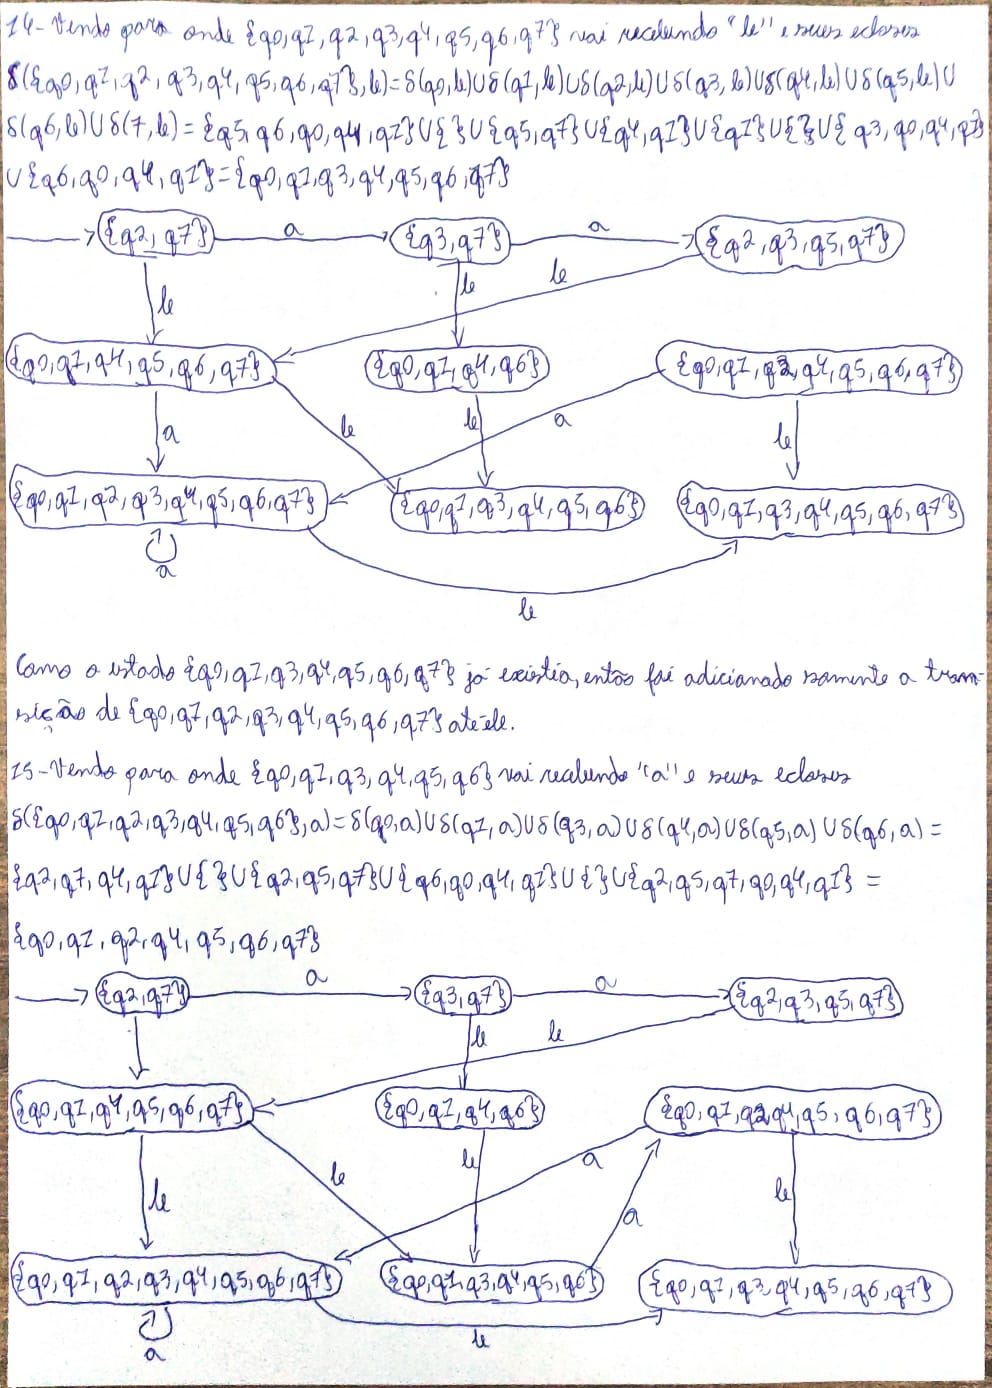 14-Vendo para onde {q0,q1,q2,q3,q4,q5,q6,q7} vai recebendo "b" e seus ecloses
δ({q0,q1,q2,q3,q4,q5,q6,q7},b)=δ(q0,b)∪δ(q1,b)∪δ(q2,b)∪δ(q3,b)∪δ(q4,b)∪δ(q5,b)∪
δ(q6,b)∪δ(7,b)={q5,q6,q0,q4,q1}∪{}∪{q5,q7}∪{q4,q1}∪{q1}∪{}∪{q3,q0,q4,q1}
∪{q6,q0,q4,q1}={q0,q1,q3,q4,q5,q6,q7}
{q2,q7} a {q3,q7} a {q2,q3,q5,q7}
b b b
{q0,q1,q4,q5,q6,q7} {q0,q1,q4,q6} {q0,q1,q2,q4,q5,q6,q7}
a b b a b
{q0,q1,q2,q3,q4,q5,q6,q7} {q0,q1,q3,q4,q5,q6} {q0,q1,q3,q4,q5,q6,q7}
a
b
Como o estado {q0,q1,q3,q4,q5,q6,q7} já existia, então foi adicionado somente a tran-
sição de {q0,q1,q2,q3,q4,q5,q6,q7} até ele.
15-Vendo para onde {q0,q1,q3,q4,q5,q6} vai recebendo "a" e seus ecloses
δ({q0,q1,q2,q3,q4,q5,q6},a)=δ(q0,a)∪δ(q1,a)∪δ(q3,a)∪δ(q4,a)∪δ(q5,a)∪δ(q6,a)=
{q2,q7,q4,q1}∪{}∪{q2,q5,q7}∪{q6,q0,q4,q1}∪{}∪{q2,q5,q7,q0,q4,q1}=
{q0,q1,q2,q4,q5,q6,q7}
{q2,q7} a {q3,q7} a {q2,q3,q5,q7}
b b
{q0,q1,q4,q5,q6,q7} {q0,q1,q4,q6} {q0,q1,q2,q4,q5,q6,q7}
b b b a a b
{q0,q1,q2,q3,q4,q5,q6,q7} {q0,q1,q3,q4,q5,q6} {q0,q1,q3,q4,q5,q6,q7}
a b